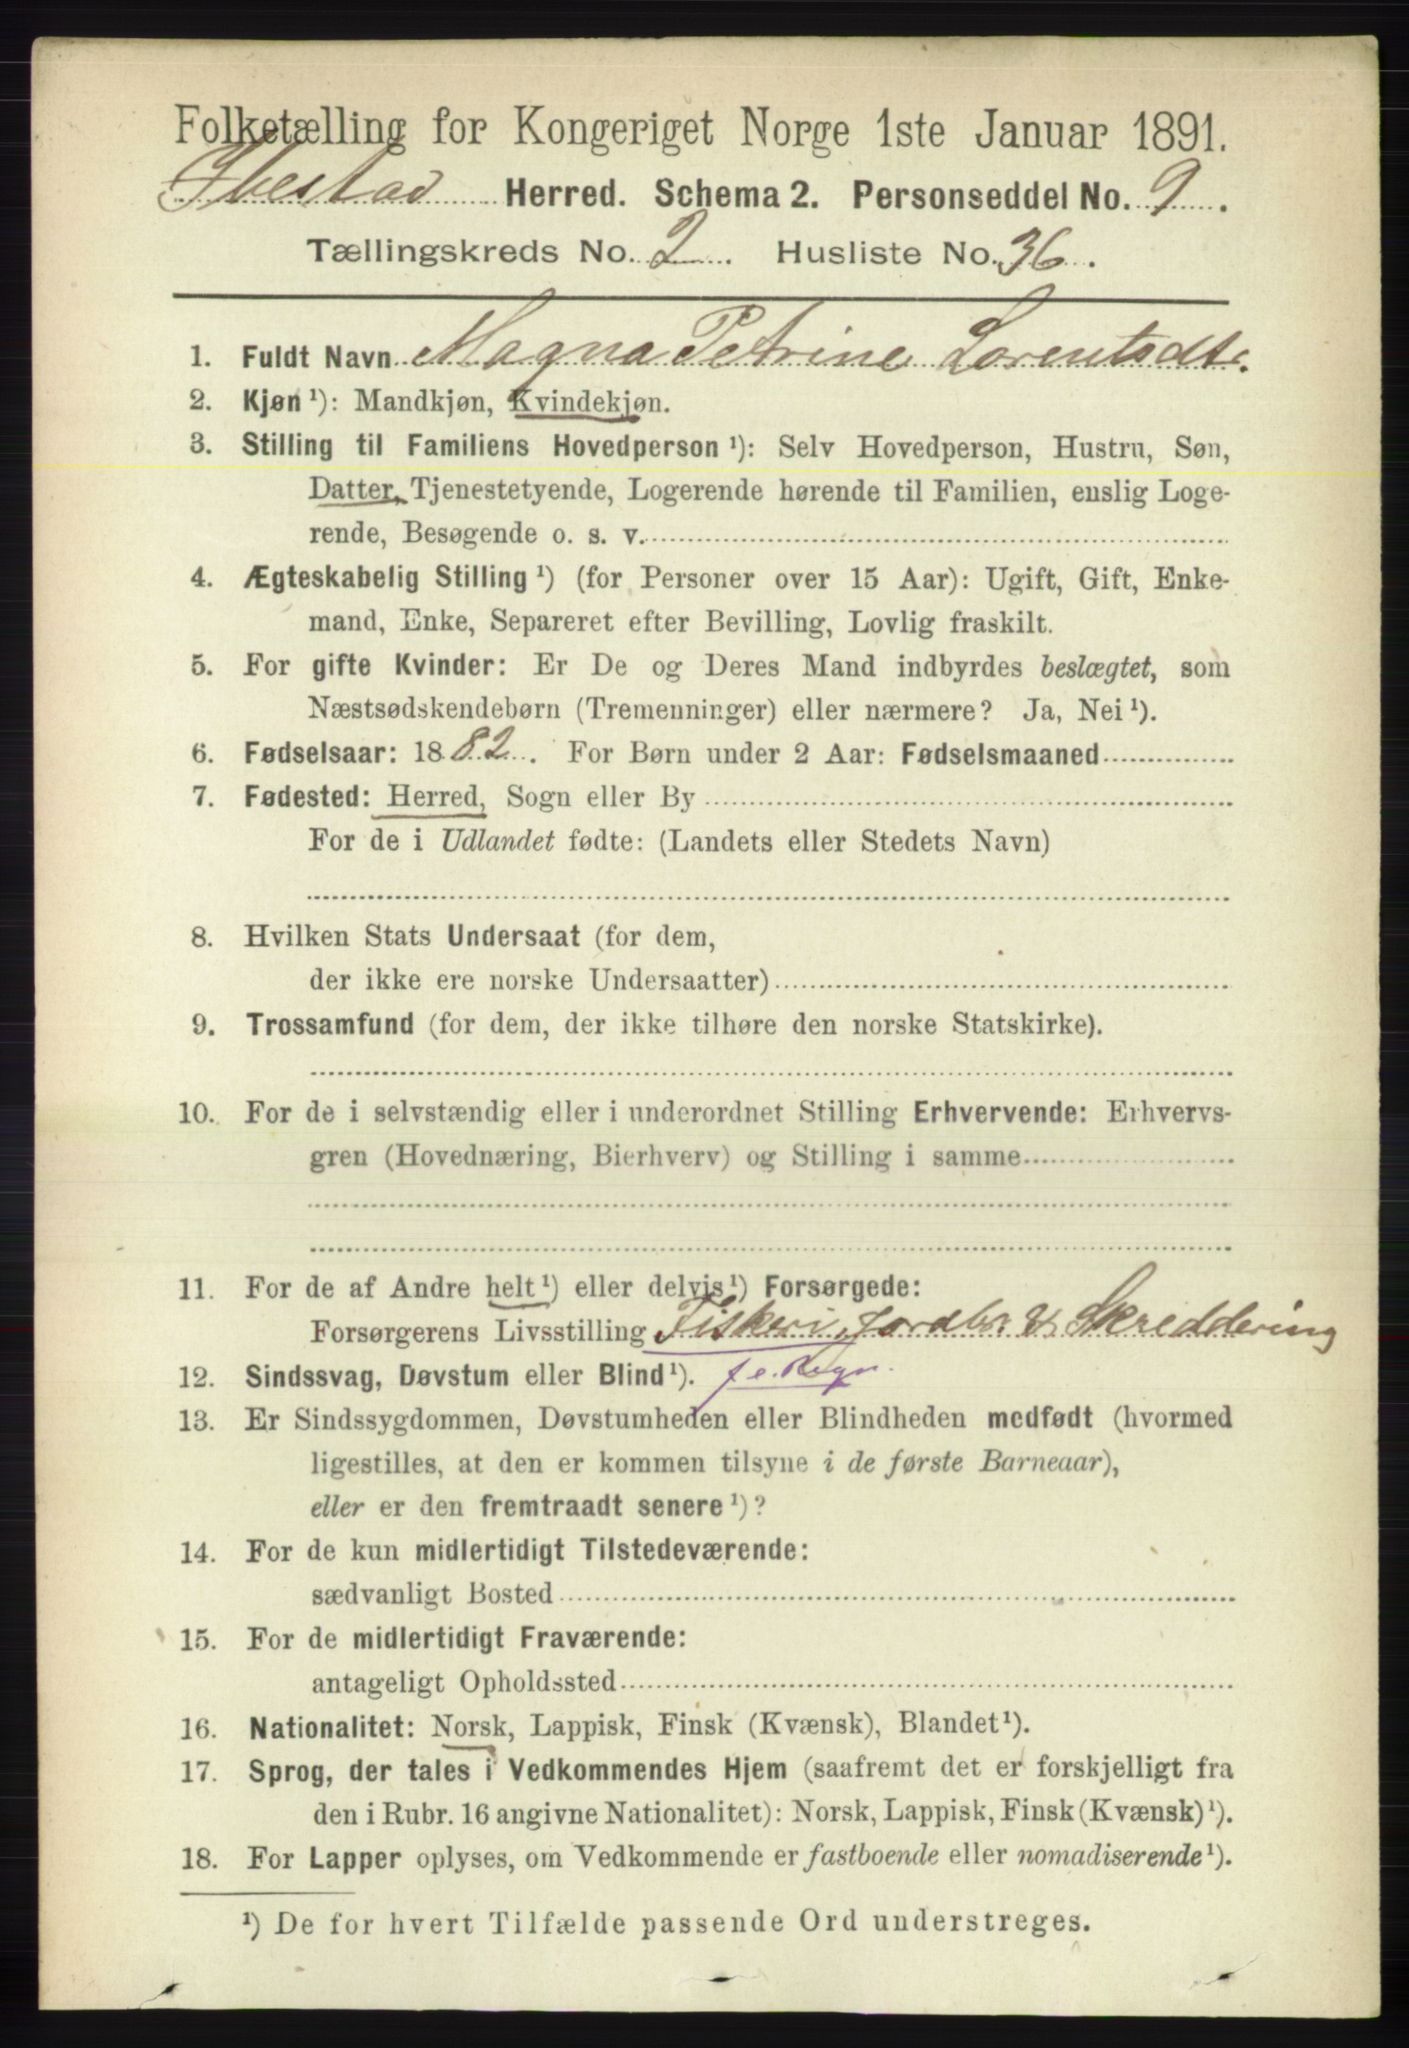 Folketælling for Kongeriget Norge 1ste Januar 1891.
Ibestad Herred. Schema 2. Personseddel No. 9.
Tællingskreds No. 2. Husliste No. 36.
1. Fuldt Navn Magna Petrine Lorentsdtr.
2. Kjøn ¹): Mandkjøn, Kvindekjøn.
3. Stilling til Familiens Hovedperson ¹): Selv Hovedperson, Hustru, Søn,
Datter, Tjenestetyende, Logerende hørende til Familien, enslig Loge-
rende, Besøgende o. s. v.
4. Ægteskabelig Stilling ¹) (for Personer over 15 Aar): Ugift, Gift, Enke-
mand, Enke, Separeret efter Bevilling, Lovlig fraskilt.
5. For gifte Kvinder: Er De og Deres Mand indbyrdes beslægtet, som
Næstsødskendebørn (Tremenninger) eller nærmere? Ja, Nei ¹).
6. Fødselsaar: 1882. For Børn under 2 Aar: Fødselsmaaned
7. Fødested: Herred, Sogn eller By
For de i Udlandet fødte: (Landets eller Stedets Navn)
8. Hvilken Stats Undersaat (for dem,
der ikke ere norske Undersaatter)
9. Trossamfund (for dem, der ikke tilhøre den norske Statskirke).
10. For de i selvstændig eller i underordnet Stilling Erhvervende: Erhvervs-
gren (Hovednæring, Bierhverv) og Stilling i samme
11. For de af Andre helt ¹) eller delvis ¹) Forsørgede:
Forsørgerens Livsstilling Fiskeri, Jordbr. & Skreddering
12. Sindssvag, Døvstum eller Blind ¹). f. e. Regn.
13. Er Sindssygdommen, Døvstumheden eller Blindheden medfødt (hvormed
ligestilles, at den er kommen tilsyne i de første Barneaar),
eller er den fremtraadt senere ¹)?
14. For de kun midlertidigt Tilstedeværende:
sædvanligt Bosted
15. For de midlertidigt Fraværende:
antageligt Opholdssted
16. Nationalitet: Norsk, Lappisk, Finsk (Kvænsk), Blandet ¹).
17. Sprog, der tales i Vedkommendes Hjem (saafremt det er forskjelligt fra
den i Rubr. 16 angivne Nationalitet): Norsk, Lappisk, Finsk (Kvænsk) ¹).
18. For Lapper oplyses, om Vedkommende er fastboende eller nomadiserende ¹).
¹) De for hvert Tilfælde passende Ord understreges.